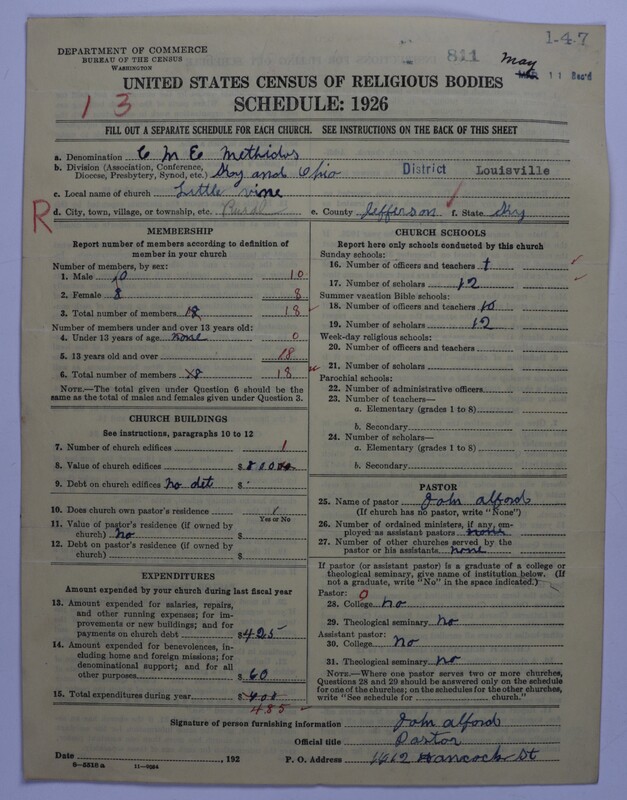 1-4-7
DEPARTMENT OF COMMERCE
BUREAU OF THE CENSUS
WASHINGTON
811
May
MAR 11 Rec'd
UNITED STATES CENSUS OF RELIGIOUS BODIES
13
SCHEDULE: 1926
FILL OUT A SEPARATE SCHEDULE FOR EACH CHURCH. SEE INSTRUCTIONS ON THE BACK OF THIS SHEET
a. Denomination C M E Methidus
b. Division (Association, Conference, Diocese, Presbytery, Synod, etc.) Ky and Ohio District Louisville
c. Local name of church Little vine
R d. City, town, village, or township, etc. Rural e. County Jefferson f. State Ky
MEMBERSHIP
Report number of members according to definition of
member in your church
Number of members, by sex:
1. Male 10 10
2. Female 8 8
3. Total number of members 18 18
Number of members under and over 13 years old:
4. Under 13 years of age none 0
5. 13 years old and over 18
6. Total number of members 18 18
NOTE.—The total given under Question 6 should be the
same as the total of males and females given under Question 3.
CHURCH BUILDINGS
See instructions, paragraphs 10 to 12
7. Number of church edifices 1
8. Value of church edifices $
9. Debt on church edifices no det $
10. Does church own pastor's residence
Yes or No
11. Value of pastor's residence (if owned by
church) no $
12. Debt on pastor's residence (if owned by
church) $
EXPENDITURES
Amount expended by your church during last fiscal year
13. Amount expended for salaries, repairs,
and other running expenses; for im-
provements or new buildings; and for
payments on church debt $425
14. Amount expended for benevolences, in-
cluding home and foreign missions; for
denominational support; and for all
other purposes $60
15. Total expenditures during year $
485
CHURCH SCHOOLS
Report here only schools conducted by this church
Sunday schools:
16. Number of officers and teachers
17. Number of scholars 12
Summer vacation Bible schools:
18. Number of officers and teachers 10
19. Number of scholars 12
Week-day religious schools:
20. Number of officers and teachers
21. Number of scholars
Parochial schools:
22. Number of administrative officers
23. Number of teachers—
a. Elementary (grades 1 to 8)
b. Secondary
24. Number of scholars—
a. Elementary (grades 1 to 8)
b. Secondary
PASTOR
25. Name of pastor John alford
(If church has no pastor, write "None")
26. Number of ordained ministers, if any, em-
ployed as assistant pastors none
27. Number of other churches served by the
pastor or his assistants none
If pastor (or assistant pastor) is a graduate of a college or
theological seminary, give name of institution below. (If
not a graduate, write "No" in the space indicated.)
Pastor: 0
28. College no
29. Theological seminary no
Assistant pastor:
30. College no
31. Theological seminary no
NOTE.—Where one pastor serves two or more churches,
Questions 28 and 29 should be answered only on the schedule
for one of the churches; on the schedules for the other churches,
write "See schedule for church."
Signature of person furnishing information John alford
Official title Pastor
Date , 192 P. O. Address 1412 Hancock St
8-5516a 11-9024